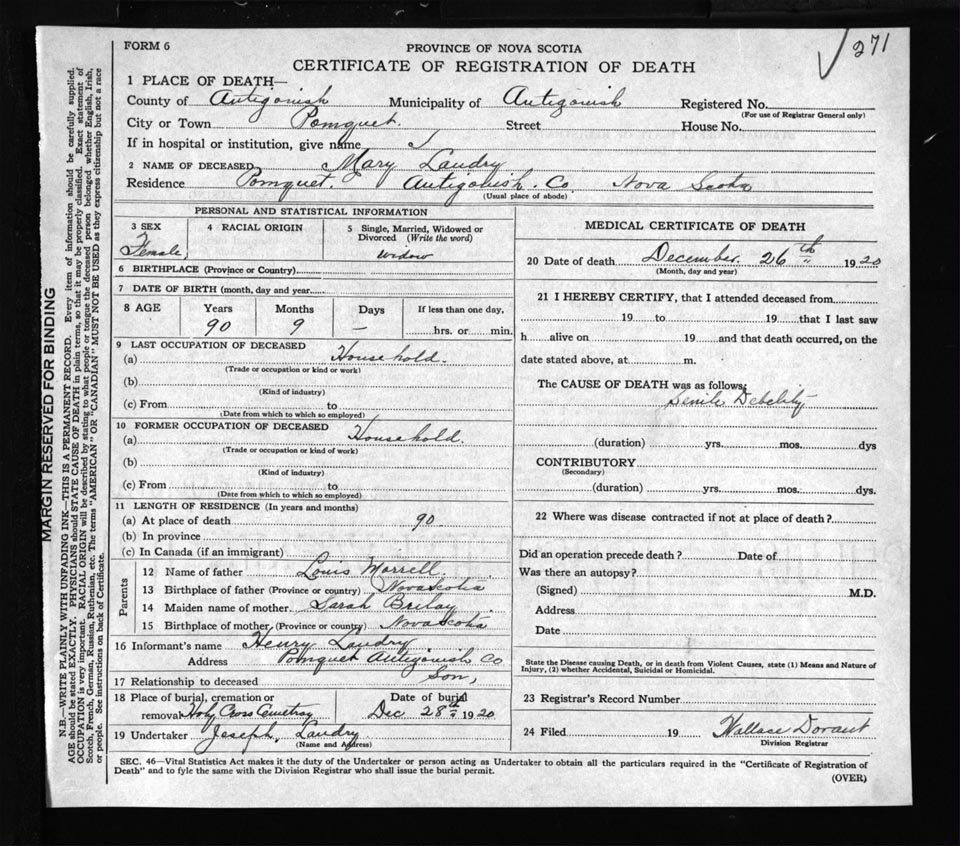 FORM 6
271
PROVINCE OF NOVA SCOTIA
CERTIFICATE OF REGISTRATION OF DEATH
1 PLACE OF DEATH—
County of Antigonish Municipality of Antigonish Registered No.
(For use of Registrar General only)
City or Town Pomquet. Street House No.
If in hospital or institution, give name
2 NAME OF DECEASED Mary Landry
Residence Pomquet. Antigonish. Co. Nova Scotia
(Usual place of abode)
PERSONAL AND STATISTICAL INFORMATION
3 SEX 4 RACIAL ORIGIN 5 Single, Married, Widowed or Divorced (Write the word)
Female, widow
6 BIRTHPLACE (Province or Country)
7 DATE OF BIRTH (month, day and year
8 AGE Years Months Days If less than one day,
90 9 — hrs. or min.
9 LAST OCCUPATION OF DECEASED
(a) Household.
(Trade or occupation or kind or work)
(b)
(Kind of industry)
(c) From to
(Date from which to which so employed)
10 FORMER OCCUPATION OF DECEASED
(a) Household.
(Trade or occupation or kind of work)
(b)
(Kind of industry)
(c) From to
(Date from which to which so employed)
11 LENGTH OF RESIDENCE (In years and months)
(a) At place of death 90
(b) In province
(c) In Canada (if an immigrant)
Parents
12 Name of father Louis Morrell
13 Birthplace of father (Province or country) Novascotia
14 Maiden name of mother. Sarah
15 Birthplace of mother (Province or country) Novascotia
16 Informant's name Henry Landry
Address Pomquet Antigonish Co
17 Relationship to deceased Son,
18 Place of burial, cremation or Date of burial
removal Holy Cross Cemetray Dec 28th 1920
19 Undertaker Joseph, Landry
(Name and Address)
MEDICAL CERTIFICATE OF DEATH
20 Date of death December. 26th 1920
(Month, day and year)
21 I HEREBY CERTIFY, that I attended deceased from
19 to 19 that I last saw
h alive on 19 and that death occurred, on the
date stated above, at m.
The CAUSE OF DEATH was as follows:
Senile Debelity
(duration) yrs. mos. dys
CONTRIBUTORY
(Secondary)
(duration) yrs. mos. dys.
22 Where was disease contracted if not at place of death?
Did an operation precede death? Date of
Was there an autopsy?
(Signed) M.D.
Address
Date
State the Disease causing Death, or in death from Violent Causes, state (1) Means and Nature of
Injury, (2) whether Accidental, Suicidal or Homicidal.
23 Registrar's Record Number
24 Filed 19 Wallace Dorant
Division Registrar
SEC. 46—Vital Statistics Act makes it the duty of the Undertaker or person acting as Undertaker to obtain all the particulars required in the "Certificate of Registration of
Death" and to fyle the same with the Division Registrar who shall issue the burial permit.
(OVER)
MARGIN RESERVED FOR BINDING
N.B.—WRITE PLAINLY WITH UNFADING INK—THIS IS A PERMANENT RECORD. Every item of information should be carefully supplied.
AGE should be stated EXACTLY. PHYSICIANS should STATE CAUSE OF DEATH in plain terms, so that it may be properly classified. Exact statement of
OCCUPATION is very important. RACIAL ORIGIN will be described by stating to what people or tongue the deceased person belonged whether English, Irish,
Scotch, French, German, Russian, Ruthenian, etc. The terms "AMERICAN" OR "CANADIAN" MUST NOT BE USED as they express citizenship but not a race
or people. See instructions on back of Certificate.